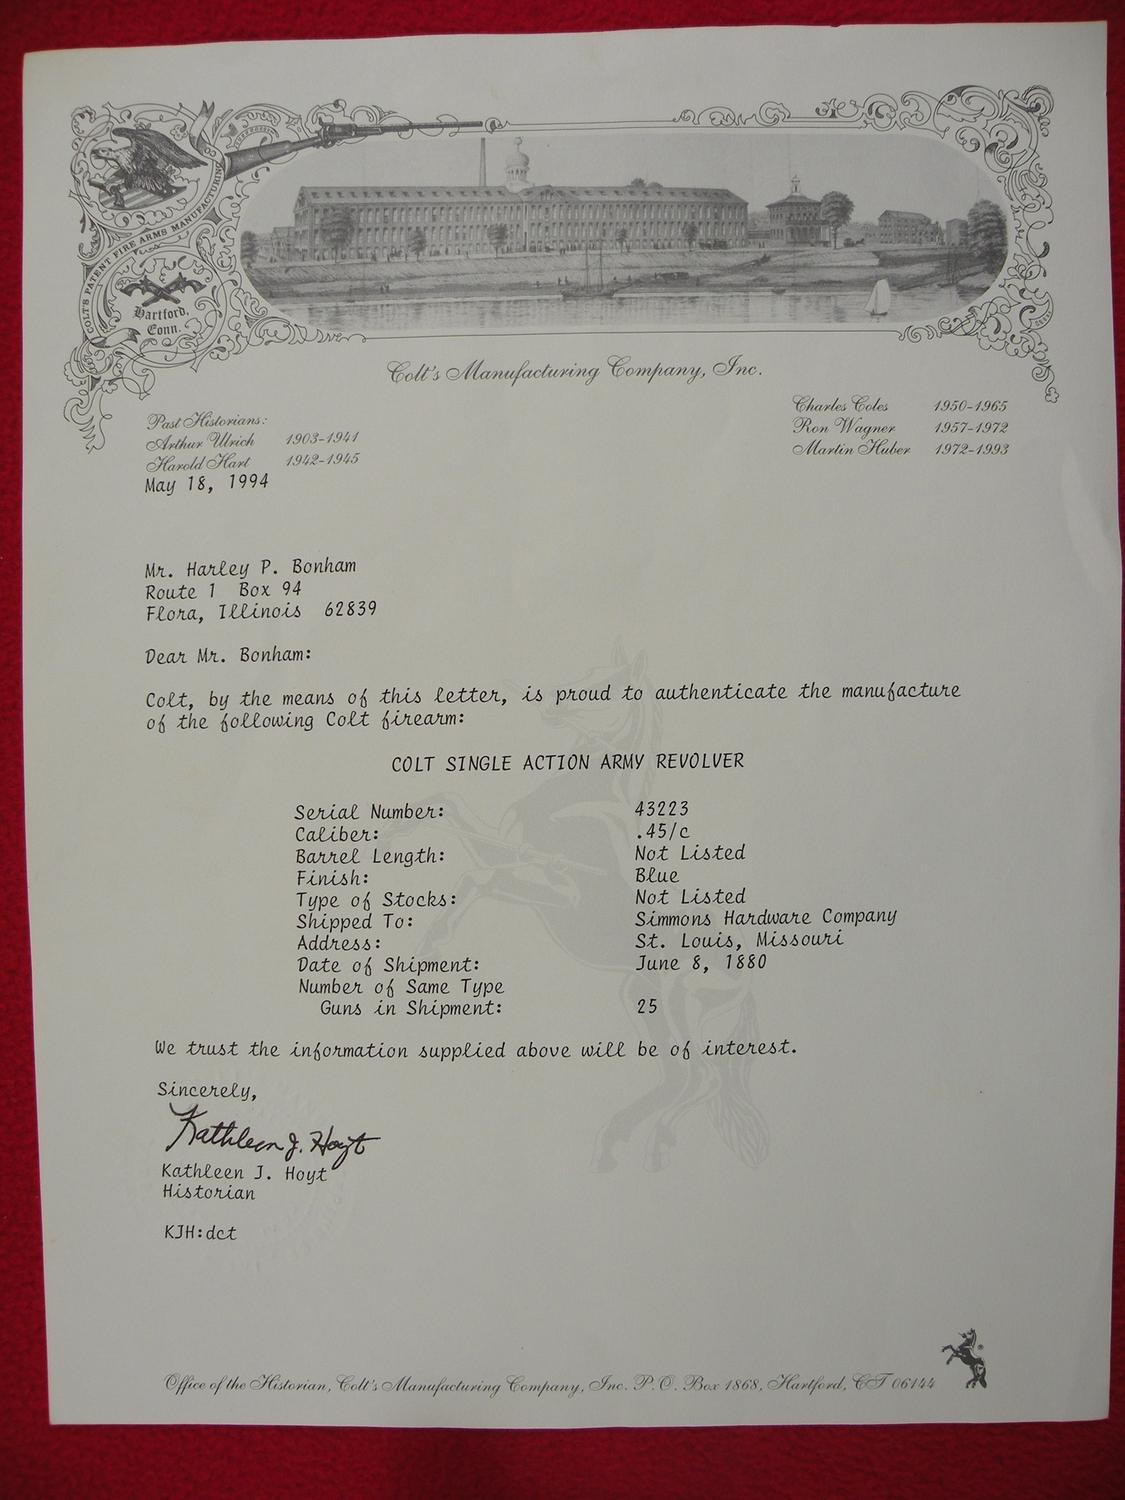 COLT'S PATENT FIRE ARMS MANUFACTURING CO
Hartford,
Conn.
Colt's Manufacturing Company, Inc.
Past Historians:
Arthur Ulrich 1903-1941
Harold Hart 1942-1945
Charles Coles 1950-1965
Ron Wagner 1957-1972
Martin Huber 1972-1993
May 18, 1994
Mr. Harley P. Bonham
Route 1 Box 94
Flora, Illinois 62839
Dear Mr. Bonham:
Colt, by the means of this letter, is proud to authenticate the manufacture
of the following Colt firearm:
COLT SINGLE ACTION ARMY REVOLVER
Serial Number: 43223
Caliber: .45/c
Barrel Length: Not Listed
Finish: Blue
Type of Stocks: Not Listed
Shipped To: Simmons Hardware Company
Address: St. Louis, Missouri
Date of Shipment: June 8, 1880
Number of Same Type
Guns in Shipment: 25
We trust the information supplied above will be of interest.
Sincerely,
Kathleen J. Hoyt
Kathleen J. Hoyt
Historian
KJH:dct
Office of the Historian, Colt's Manufacturing Company, Inc. P.O. Box 1868, Hartford, CT 06144